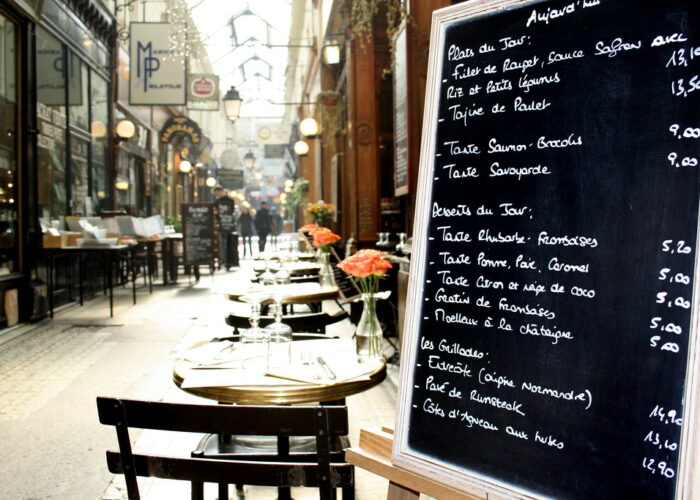 Aujourd'hui
Plats du Jour:
- Filet de Rouget, sauce Safran avec
Riz et Petits légumes 13,10
- Tajine de Poulet 13,50
- Tarte Saumon-Brocolis 9,00
- Tarte Savoyarde 9,00
Desserts du Jour:
- Tarte Rhubarbe-Framboises 5,20
- Tarte Pomme, Poir, Caramel 5,00
- Tarte Citron et neige de coco 5,00
- Gratin de Framboises 5,00
- Moelleux à la châtaigne 5,00
Les Grillades:
- Entrecôte (origine Normandie) 14,90
- Pavé de Rumsteak 13,10
- Côtes d'Agneau aux herbes 12,90
M
P